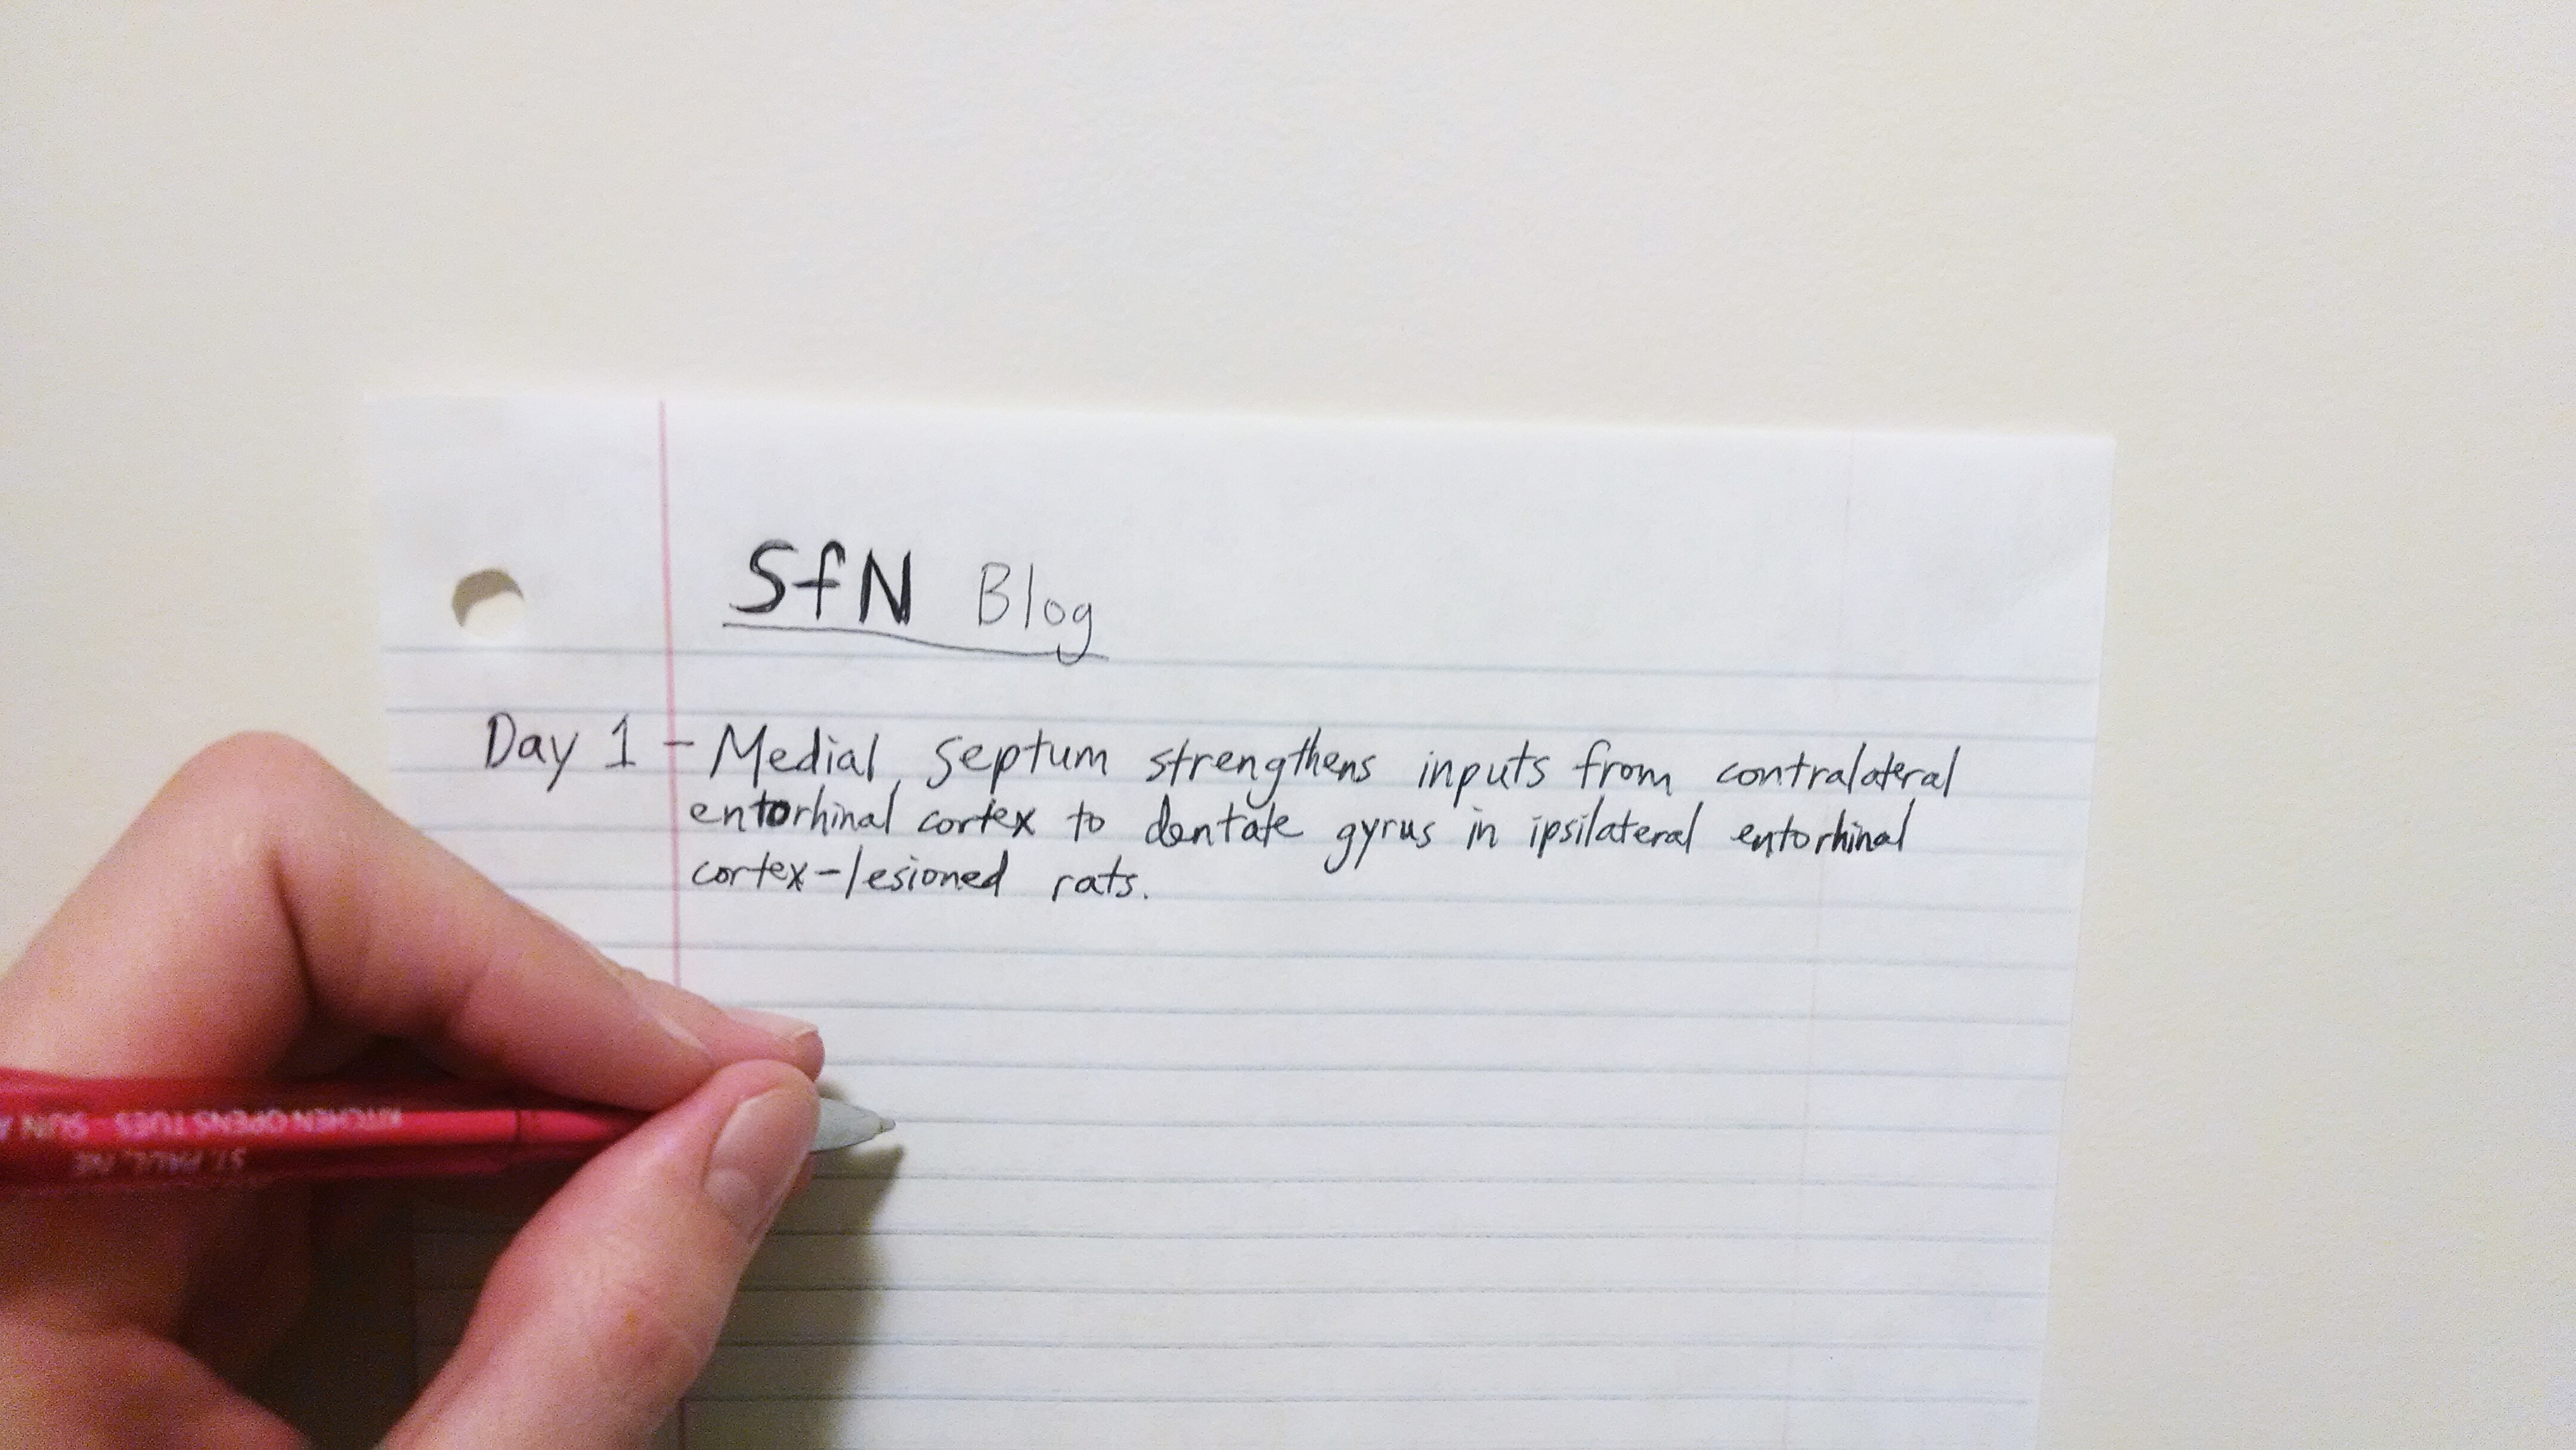 SfN Blog
Day 1 - Medial septum strengthens inputs from contralateral
entorhinal cortex to dentate gyrus in ipsilateral entorhinal
cortex-lesioned rats.
KITCHEN OPENS TUES - SUN
ST. PAUL, NE